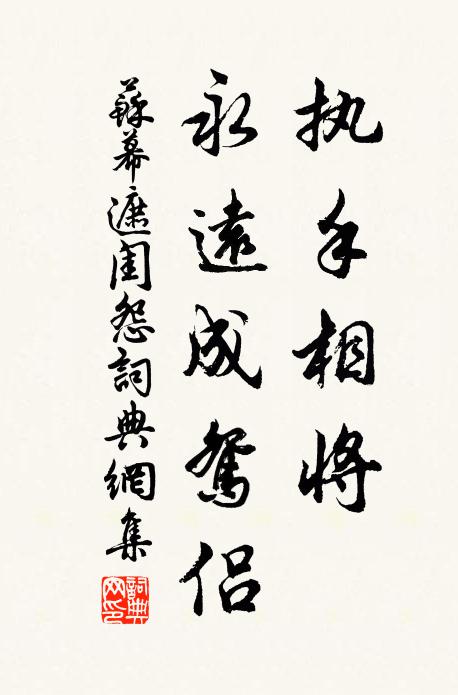 执手相将
永遠成鴛侣
蘇幕遮闺怨詞典網集
詞典网印